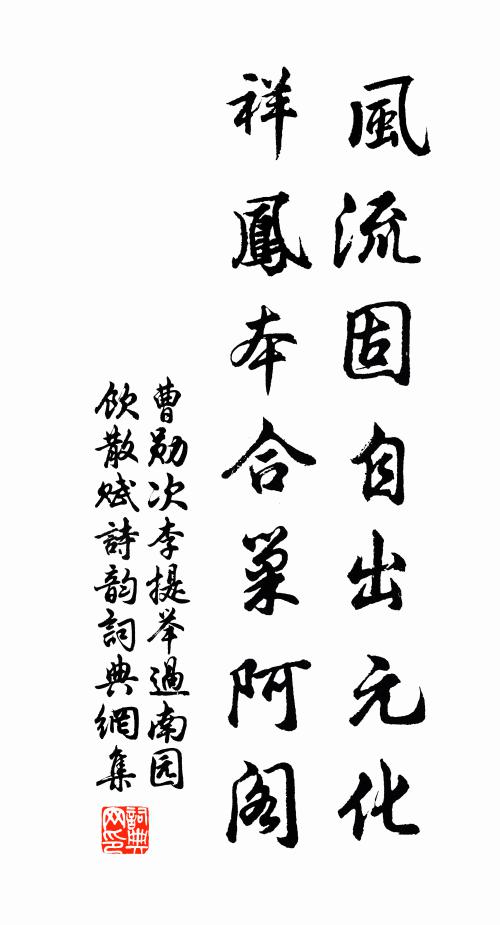 風流固自出元化
祥鳳本合巢阿閣
曹勛次李提举過南园
飲散赋詩韵詞典網集
詞典
网印